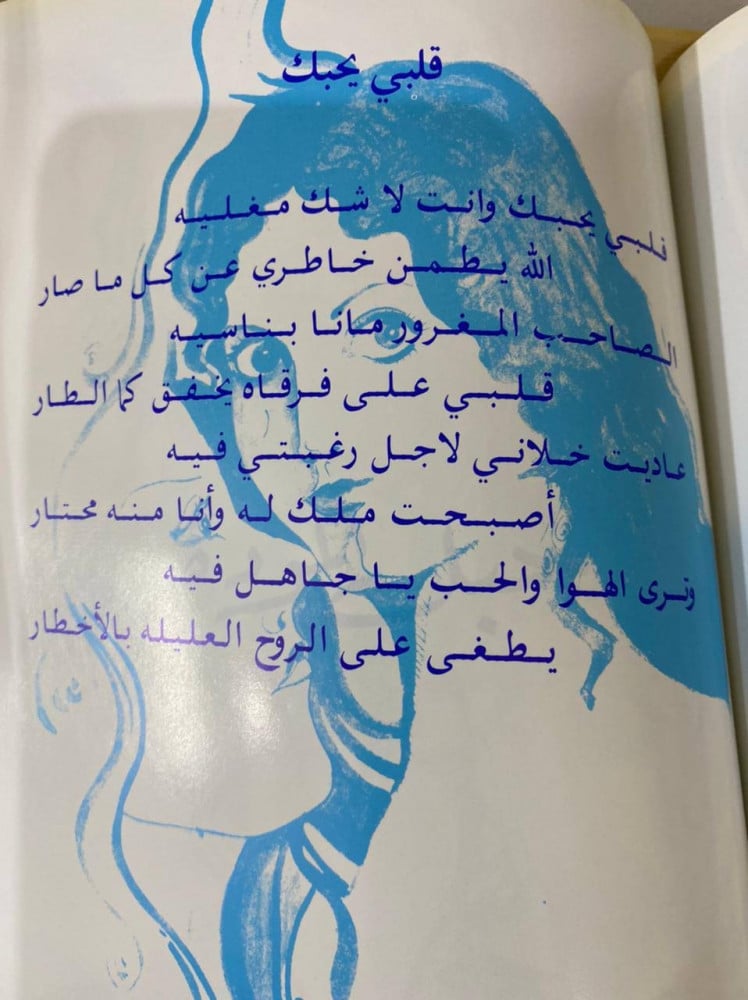 قلبي يحبك
قلبي يحبك وانت لا شك مغليه
الله يطمن خاطري عن كل ما صار
الصاحب المغرور مانا بناسيه
قلبي على فرقاه يخفق كما الطار
عاديت خلاني لاجل رغبتي فيه
أصبحت ملك له وأنا منه محتار
وترى الهوا والحب يا جاهل فيه
يطغى على الروح العليله بالأخطار